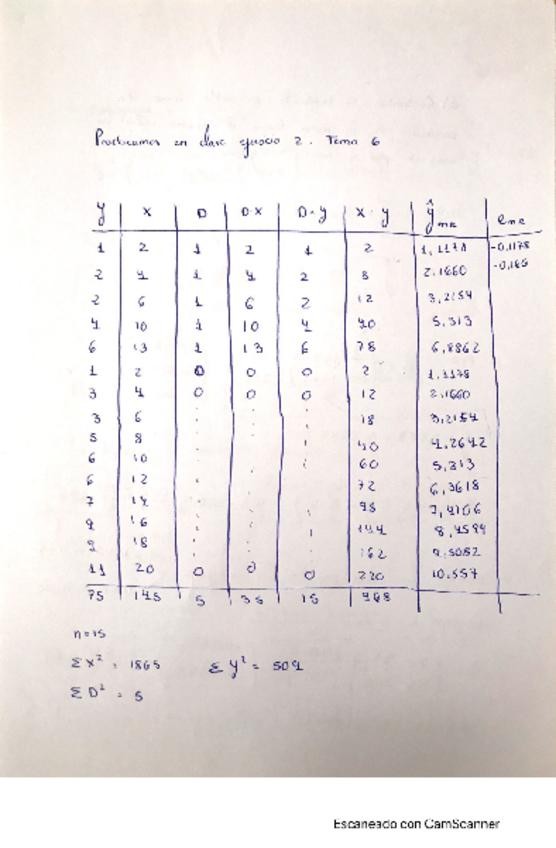 Practicamos en clase ejercicio 2. Tema 6
y | x | D | D·x | D·y | x·y | ŷ_MR | e_MR
1 | 2 | 1 | 2 | 1 | 2 | 1,1178 | -0,1178
2 | 4 | 1 | 4 | 2 | 8 | 2,1660 | -0,166
2 | 6 | 1 | 6 | 2 | 12 | 3,2154
4 | 10 | 1 | 10 | 4 | 40 | 5,313
6 | 13 | 1 | 13 | 6 | 78 | 6,8862
1 | 2 | 0 | 0 | 0 | 2 | 1,1178
3 | 4 | 0 | 0 | 0 | 12 | 2,1660
3 | 6 | 18 | 3,2154
5 | 8 | 40 | 4,2642
6 | 10 | 60 | 5,313
6 | 12 | 72 | 6,3618
7 | 14 | 98 | 7,4106
9 | 16 | 144 | 8,4594
9 | 18 | 162 | 9,5082
11 | 20 | 0 | 0 | 0 | 220 | 10,557
75 | 145 | 5 | 35 | 15 | 968
n=15
Σx² = 1865 Σy² = 509
ΣD² = 5
Escaneado con CamScanner